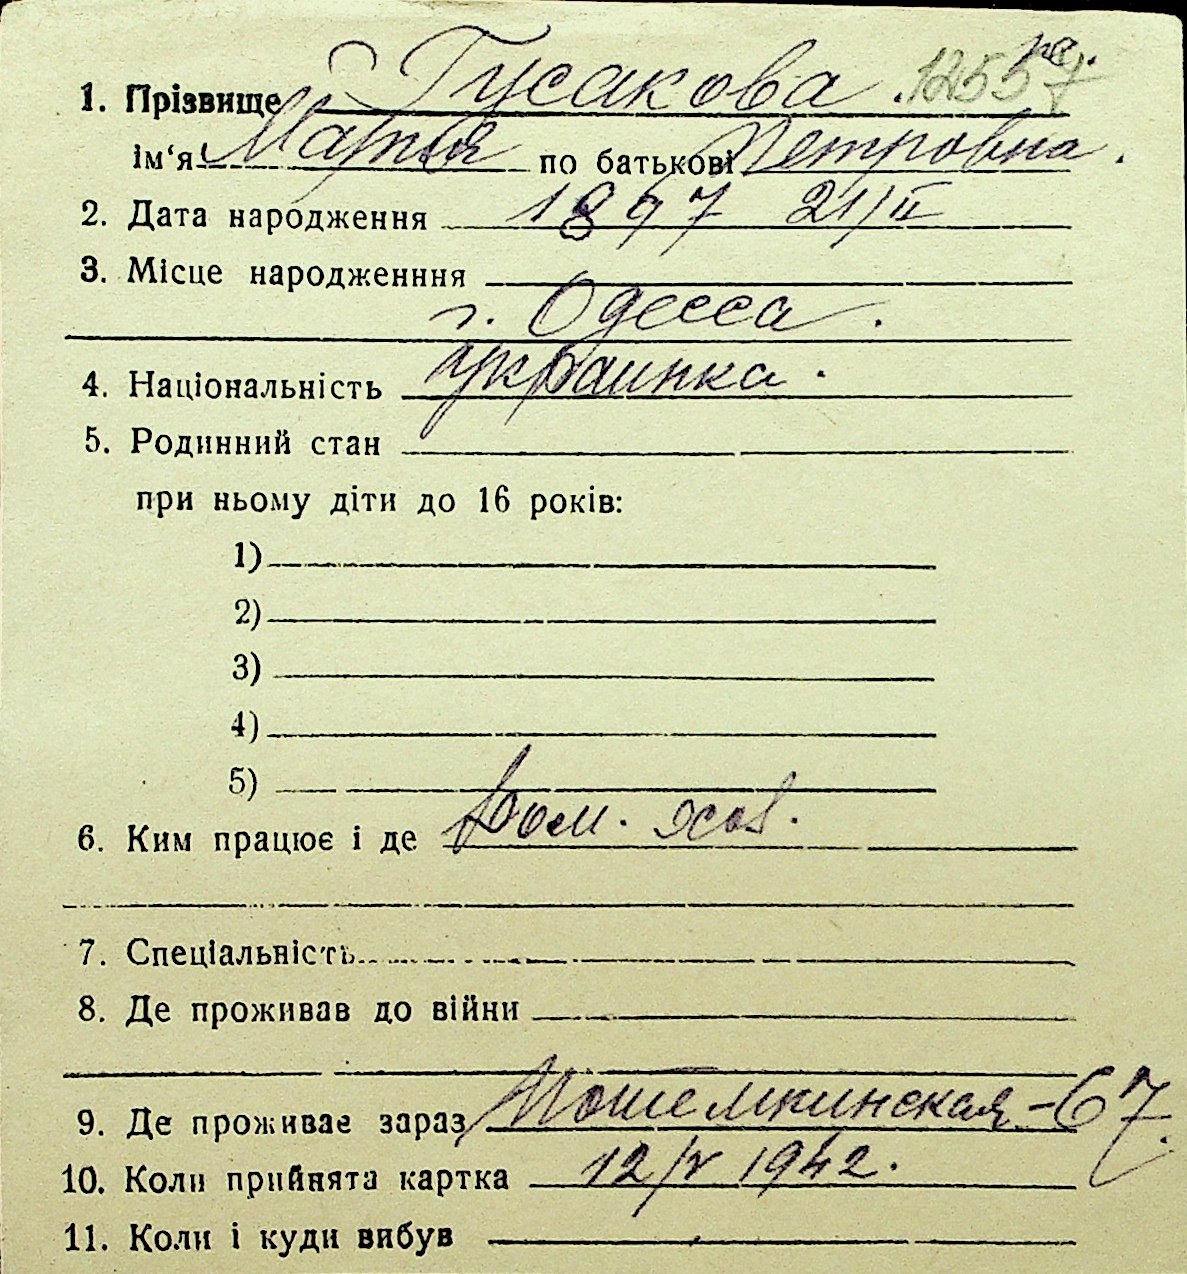 1. Прізвище Гусакова. 12557
ім‘я Мария по батькові Петровна.
2. Дата народження 1897 21/II
3. Місце народженння
г. Одесса.
4. Національність украинка.
5. Родинний стан
при ньому діти до 16 років:
1)
2)
3)
4)
5)
6. Ким працює і де Дом. хоз.
7. Спеціальність
8. Де проживав до війни
9. Де проживає зараз Потемкинская-67.
10. Коли прийнята картка 12/V 1942.
11. Коли і куди вибув